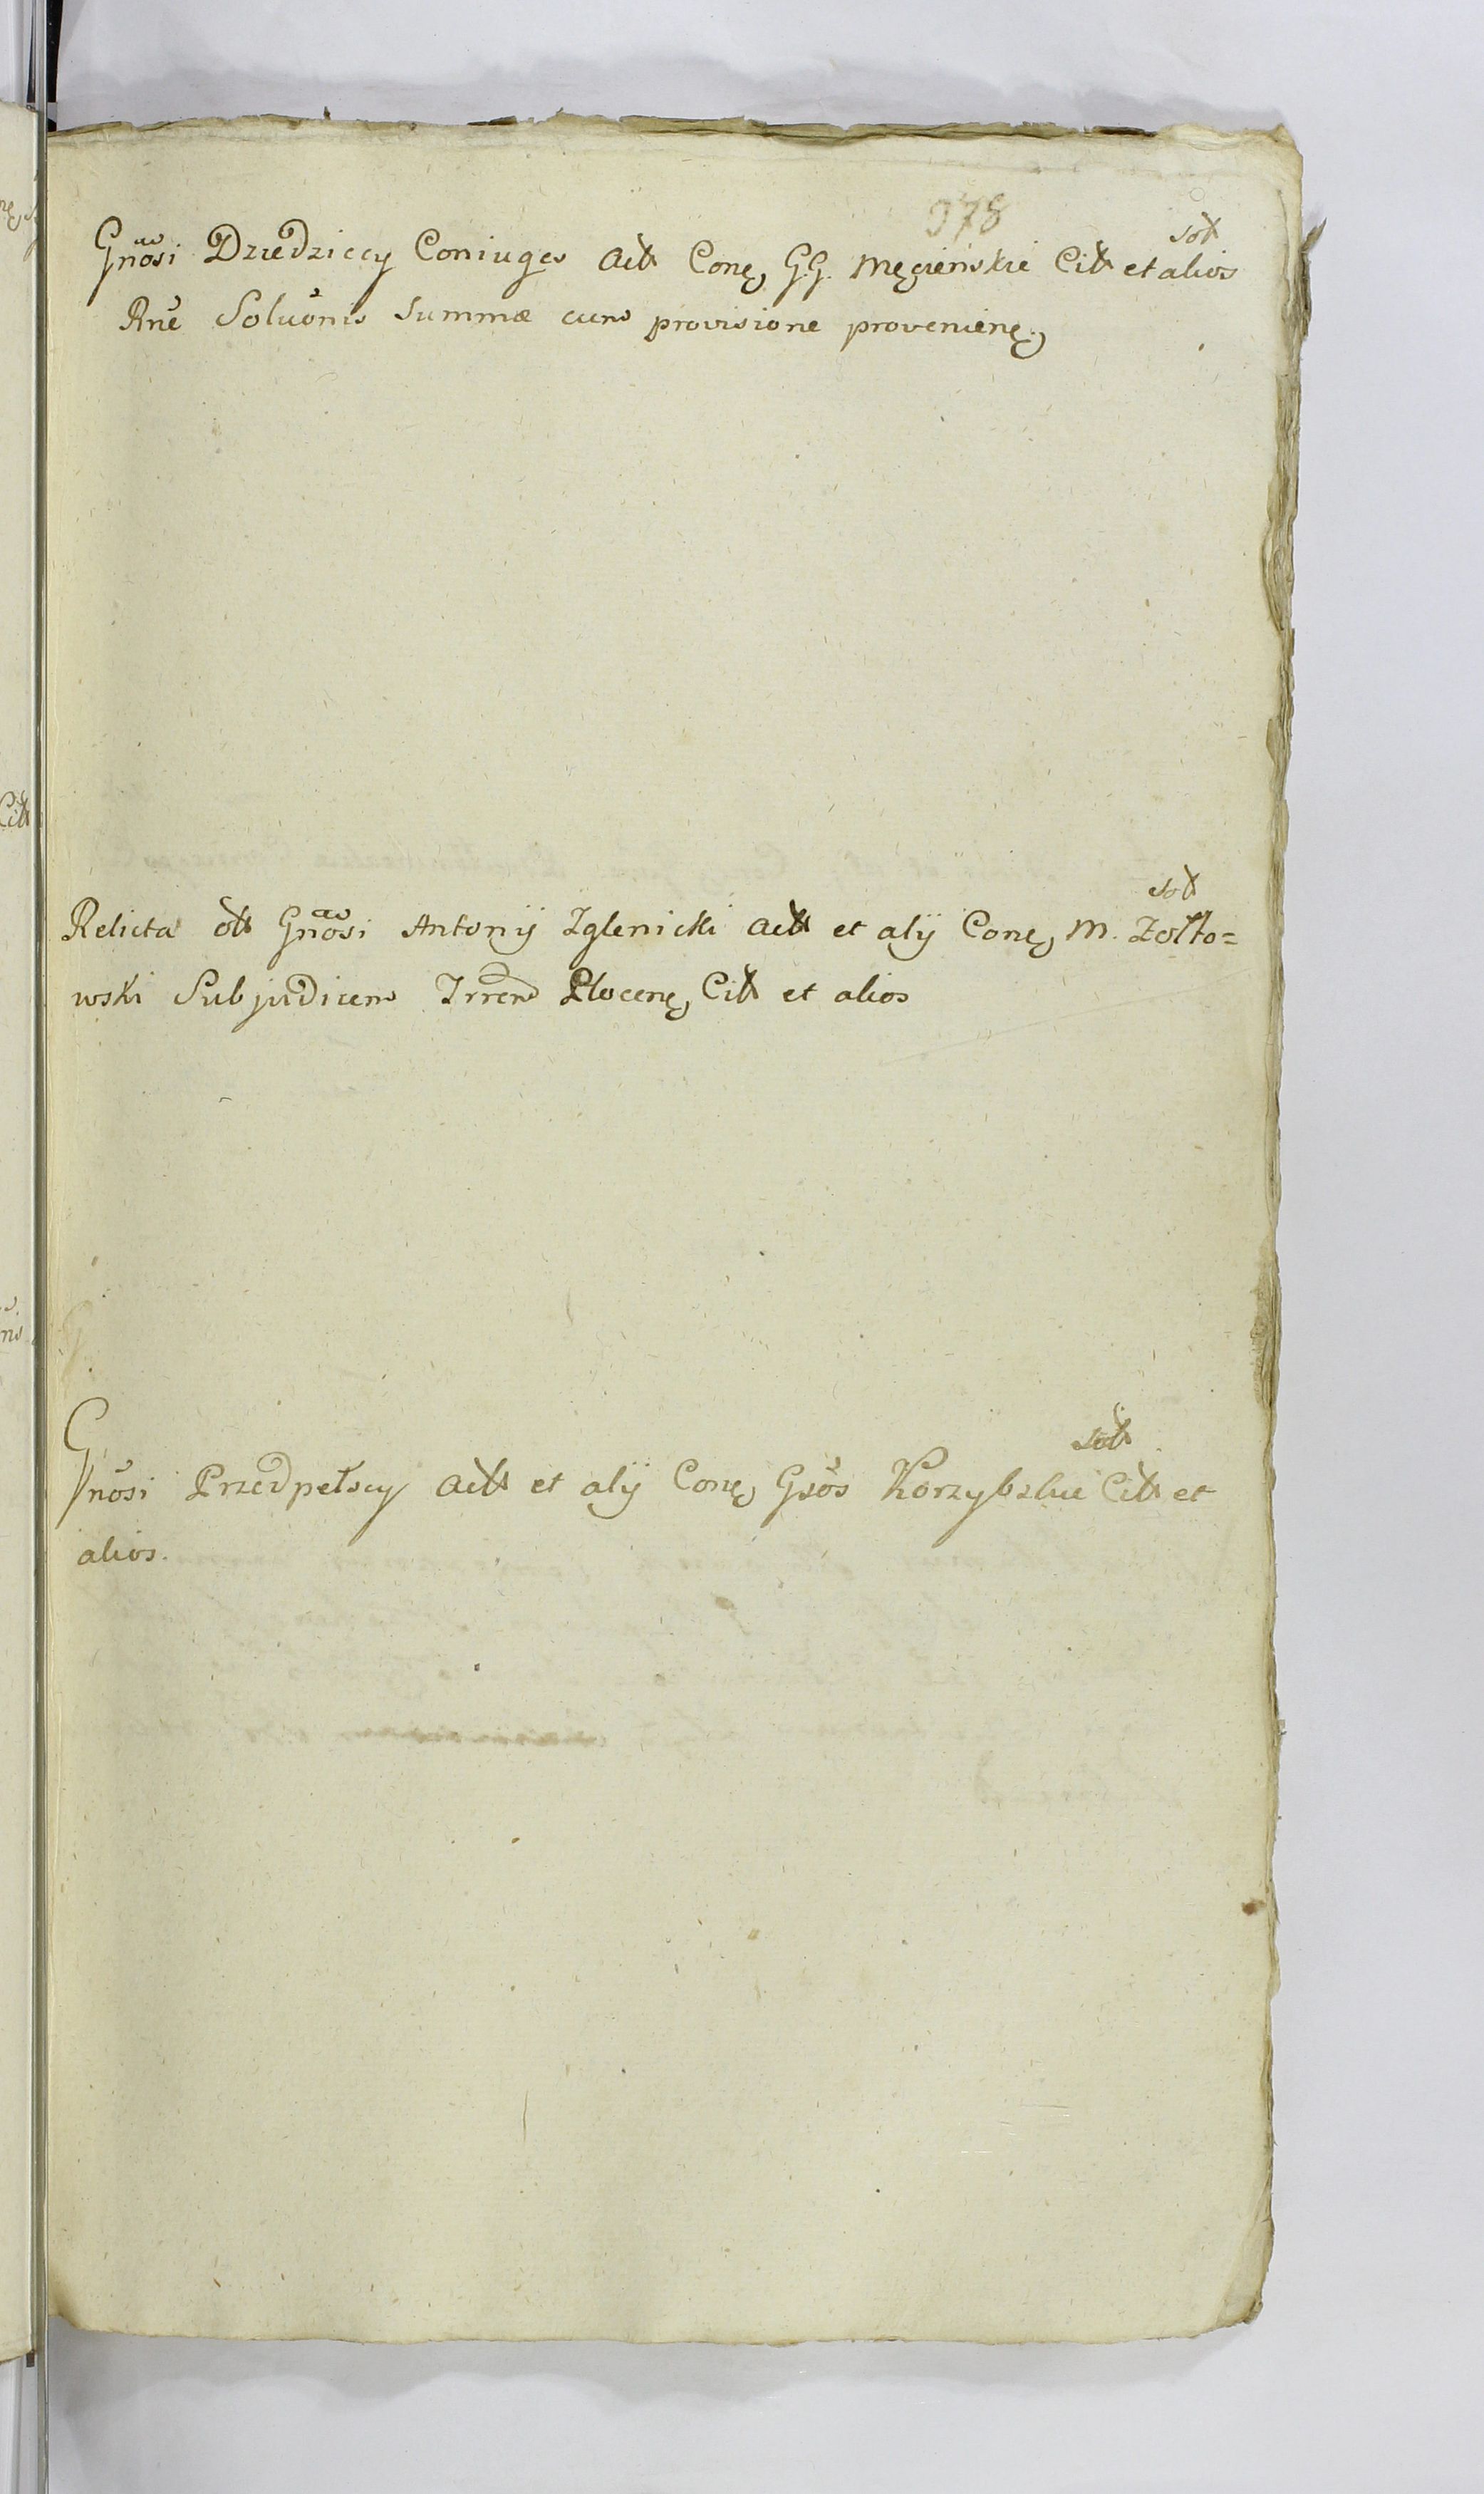 978
solt
Gnosi Dziedziccy Coniuges Actt Conę GG. Męcieńskie Citt et alios
Rne Soluonis Summæ cum provisione provenienę
solt
Relicta olt Gnosi Antonij Iglenicki Actt et alij Conę M. Zołto=
wski Subjudicem Trrem Plocenę Citt et alios
solt
Gnosi Przedpełscy Actt et alij Conę Gsos Korzybskie Citt et
alios.